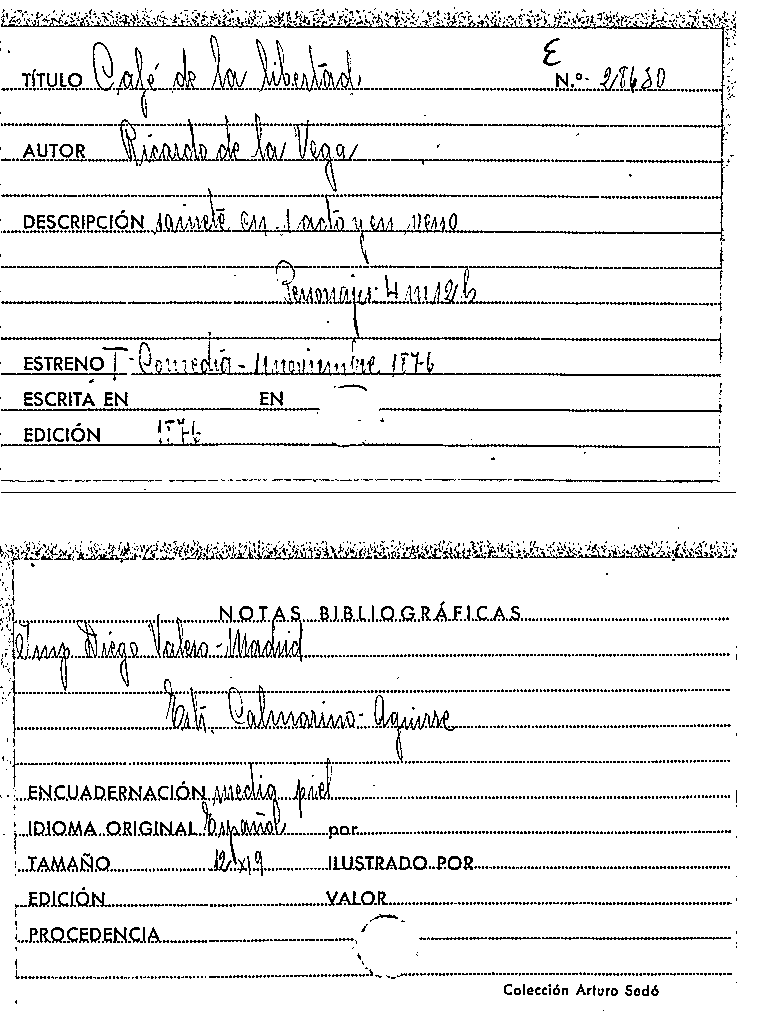 E
TÍTULO Café de la libertad. N.º- 28680
AUTOR Ricardo de la Vega
DESCRIPCIÓN sainete en 1 acto y en verso
Personajes 4 m 12 h
ESTRENO T- Comedia - 11 noviembre 1876
ESCRITA EN EN
EDICIÓN 1876
NOTAS BIBLIOGRÁFICAS
Imp Diego Valero - Madrid
Calmarino - Aguirre
ENCUADERNACIÓN media piel
IDIOMA ORIGINAL Español por
TAMAÑO 12x19 ILUSTRADO POR
EDICIÓN VALOR
PROCEDENCIA
Colección Arturo Sedó